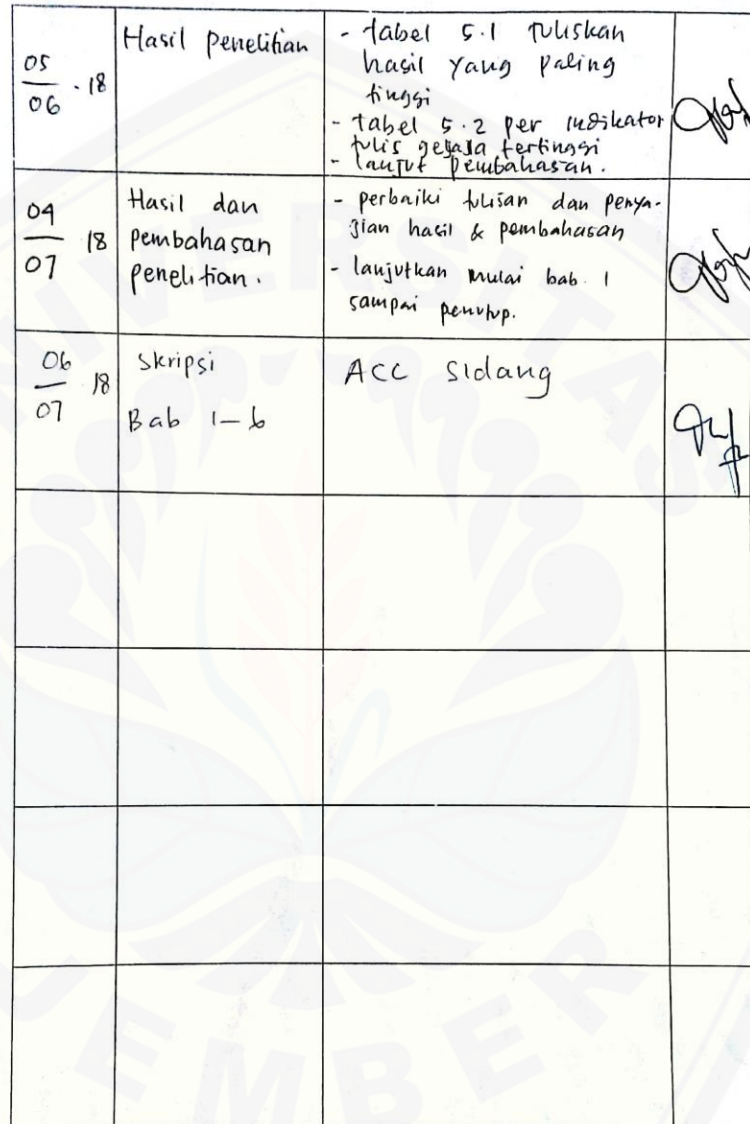 05/06 · 18
Hasil penelitian
- tabel 5.1 tuliskan
hasil yang paling
tinggi
- tabel 5.2 per indikator
tulis gejala tertinggi
- lanjut pembahasan.
04/07 18
Hasil dan
pembahasan
penelitian.
- perbaiki tulisan dan penya-
jian hasil & pembahasan
- lanjutkan mulai bab 1
sampai penutup.
06/07 18
Skripsi
Bab 1-6
ACC Sidang
UNIVERSITAS
JEMBER